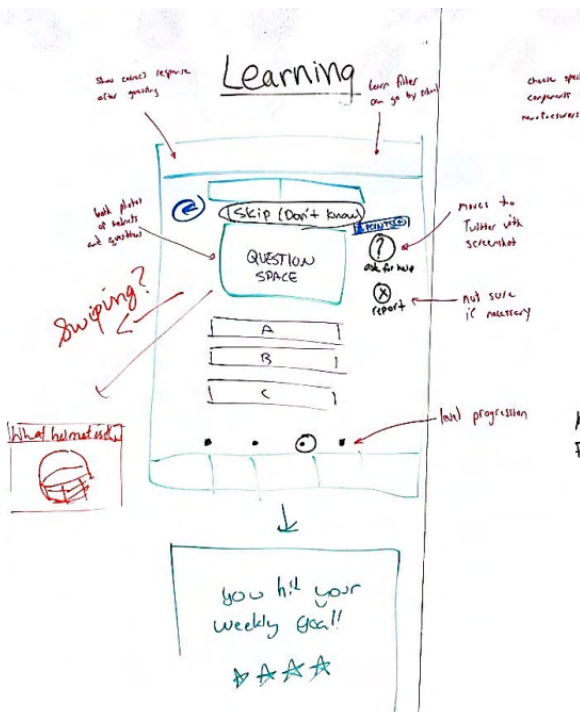 Learning
Show correct response
after guessing
learn filter
can go by
choose
components
manufacturers
Skip (Don't know)
POINTS
both photos
of helmets
and questions
QUESTION
SPACE
?
ask for help
moves to
Twitter with
screenshot
X
report
not sure
if necessary
Swiping?
A
B
C
level progression
What helmet is
you hit your
weekly goal!